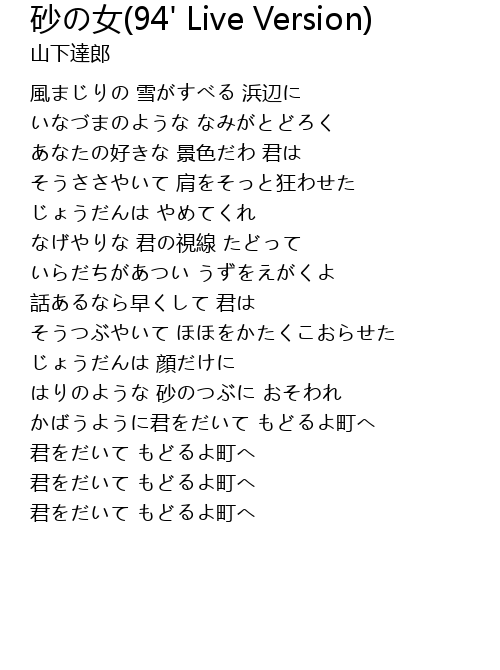 砂の女(94' Live Version)
山下達郎
風まじりの 雪がすべる 浜辺に
いなづまのような なみがとどろく
あなたの好きな 景色だわ 君は
そうささやいて 肩をそっと狂わせた
じょうだんは やめてくれ
なげやりな 君の視線 たどって
いらだちがあつい うずをえがくよ
話あるなら早くして 君は
そうつぶやいて ほほをかたくこおらせた
じょうだんは 顔だけに
はりのような 砂のつぶに おそわれ
かばうように君をだいて もどるよ町へ
君をだいて もどるよ町へ
君をだいて もどるよ町へ
君をだいて もどるよ町へ